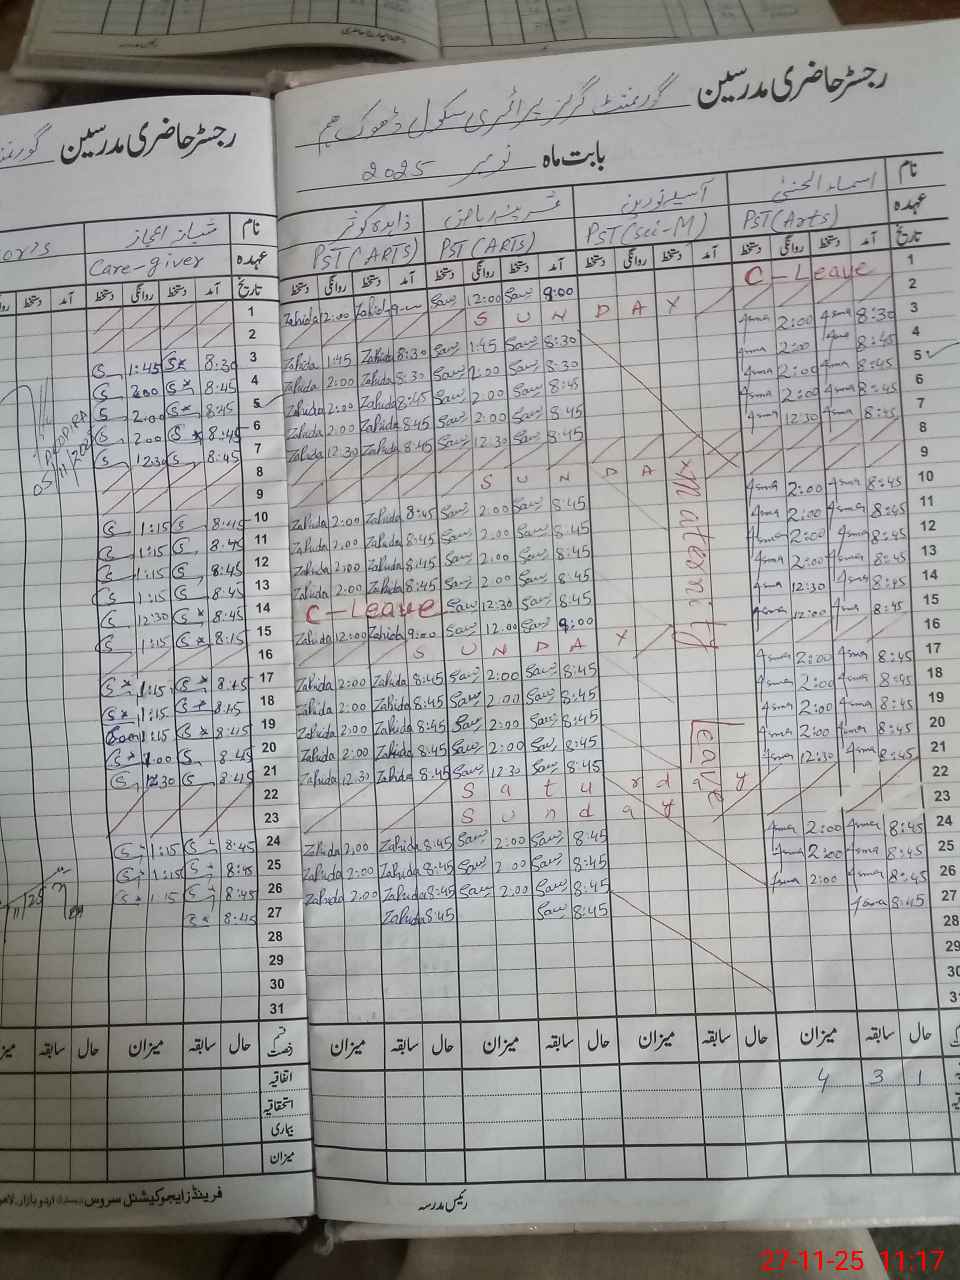 رجسٹر حاضری مدرسین گورنمنٹ گرلز پرائمری سکول ڈھوک ہم
بابت ماہ نومبر 2025
نام اسماء الحسنیٰ آسیہ نورین زاہدہ کوثر
عہدہ PST(Arts) PST(Sci-M) PST(ARTS) PST(ARTS)
تاریخ آمد دستخط روانگی دستخط آمد دستخط روانگی دستخط آمد دستخط روانگی دستخط آمد دستخط روانگی دستخط
1 C-Leave 9:00 Saw 2:00 Saw 9:00 Zahida 2:00 Zahida
2 S U N D A Y
3 8:30 Asma 2:00 Asma 8:30 Saw 1:45 Saw 8:30 Zahida 1:45 Zahida
4 8:45 Asma 2:00 Asma 8:30 Saw 2:00 Saw 8:30 Zahida 2:00 Zahida
5 8:45 Asma 2:00 Asma 8:45 Saw 2:00 Saw 8:45 Zahida 2:00 Zahida
6 8:45 Asma 2:00 Asma 8:45 Saw 2:00 Saw 8:45 Zahida 2:00 Zahida
7 8:45 Asma 12:30 Asma 8:45 Saw 12:30 Saw 8:45 Zahida 12:30 Zahida
8
9 S U N D A Y
10 8:45 Asma 2:00 Asma 8:45 Saw 2:00 Saw 8:45 Zahida 2:00 Zahida
11 8:45 Asma 2:00 Asma 8:45 Saw 2:00 Saw 8:45 Zahida 2:00 Zahida
12 8:45 Asma 2:00 Asma 8:45 Saw 2:00 Saw 8:45 Zahida 2:00 Zahida
13 8:45 Asma 2:00 Asma 8:45 Saw 2:00 Saw 8:45 Zahida 2:00 Zahida
14 8:45 Asma 12:30 Asma 8:45 Saw 12:30 Saw C-Leave
15 8:45 Asma 12:00 Asma 9:00 Saw 12:00 Saw 9:00 Zahida 12:00 Zahida
16 S U N D A Y
17 8:45 Asma 2:00 Asma 8:45 Saw 2:00 Saw 8:45 Zahida 2:00 Zahida
18 8:45 Asma 2:00 Asma 8:45 Saw 2:00 Saw 8:45 Zahida 2:00 Zahida
19 8:45 Asma 2:00 Asma 8:45 Saw 2:00 Saw 8:45 Zahida 2:00 Zahida
20 8:45 Asma 2:00 Asma 8:45 Saw 2:00 Saw 8:45 Zahida 2:00 Zahida
21 8:45 Asma 12:30 Asma 8:45 Saw 12:30 Saw 8:45 Zahida 12:30 Zahida
22 S a t u r d a y
23 S u n d a y
24 8:45 Asma 2:00 Asma 8:45 Saw 2:00 Saw 8:45 Zahida 2:00 Zahida
25 8:45 Asma 2:00 Asma 8:45 Saw 2:00 Saw 8:45 Zahida 2:00 Zahida
26 8:45 Asma 2:00 Asma 8:45 Saw 2:00 Saw 8:45 Zahida 2:00 Zahida
27 8:45 Asma 8:45 Saw 8:45 Zahida
28
29
30
31
Maternity Leave
حال سابقہ میزان حال سابقہ میزان حال سابقہ میزان حال سابقہ میزان
1 3 4
رئیس مدرسہ
رجسٹر حاضری مدرسین
نام شہناز اعجاز
عہدہ Care-giver
تاریخ آمد دستخط روانگی دستخط آمد دستخط
1
2
3 8:30 S 1:45 S
4 8:45 S 2:00 S
5 8:45 S 2:00 S
6 8:45 S 2:00 S
7 8:45 S 12:30 S
8
9
10 8:45 S 1:15 S
11 8:45 S 1:15 S
12 8:45 S 1:15 S
13 8:45 S 1:15 S
14 8:45 S 12:30 S
15 8:15 S 1:15 S
16
17 8:45 S 1:15 S
18 8:45 S 1:15 S
19 8:45 S 1:15
20 8:45 S 1:00 S
21 8:45 S 12:30 S
22
23
24 8:45 S 1:15 S
25 8:45 S 1:15 S
26 8:45 S 1:15 S
27 8:45 S
28
29
30
31
قسم رخصت حال سابقہ میزان حال سابقہ
اتفاقیہ
استحقاقیہ
بیماری
میزان
فرینڈز ایجوکیشنل سروس اردو بازار لاہور
27-11-25 11:17